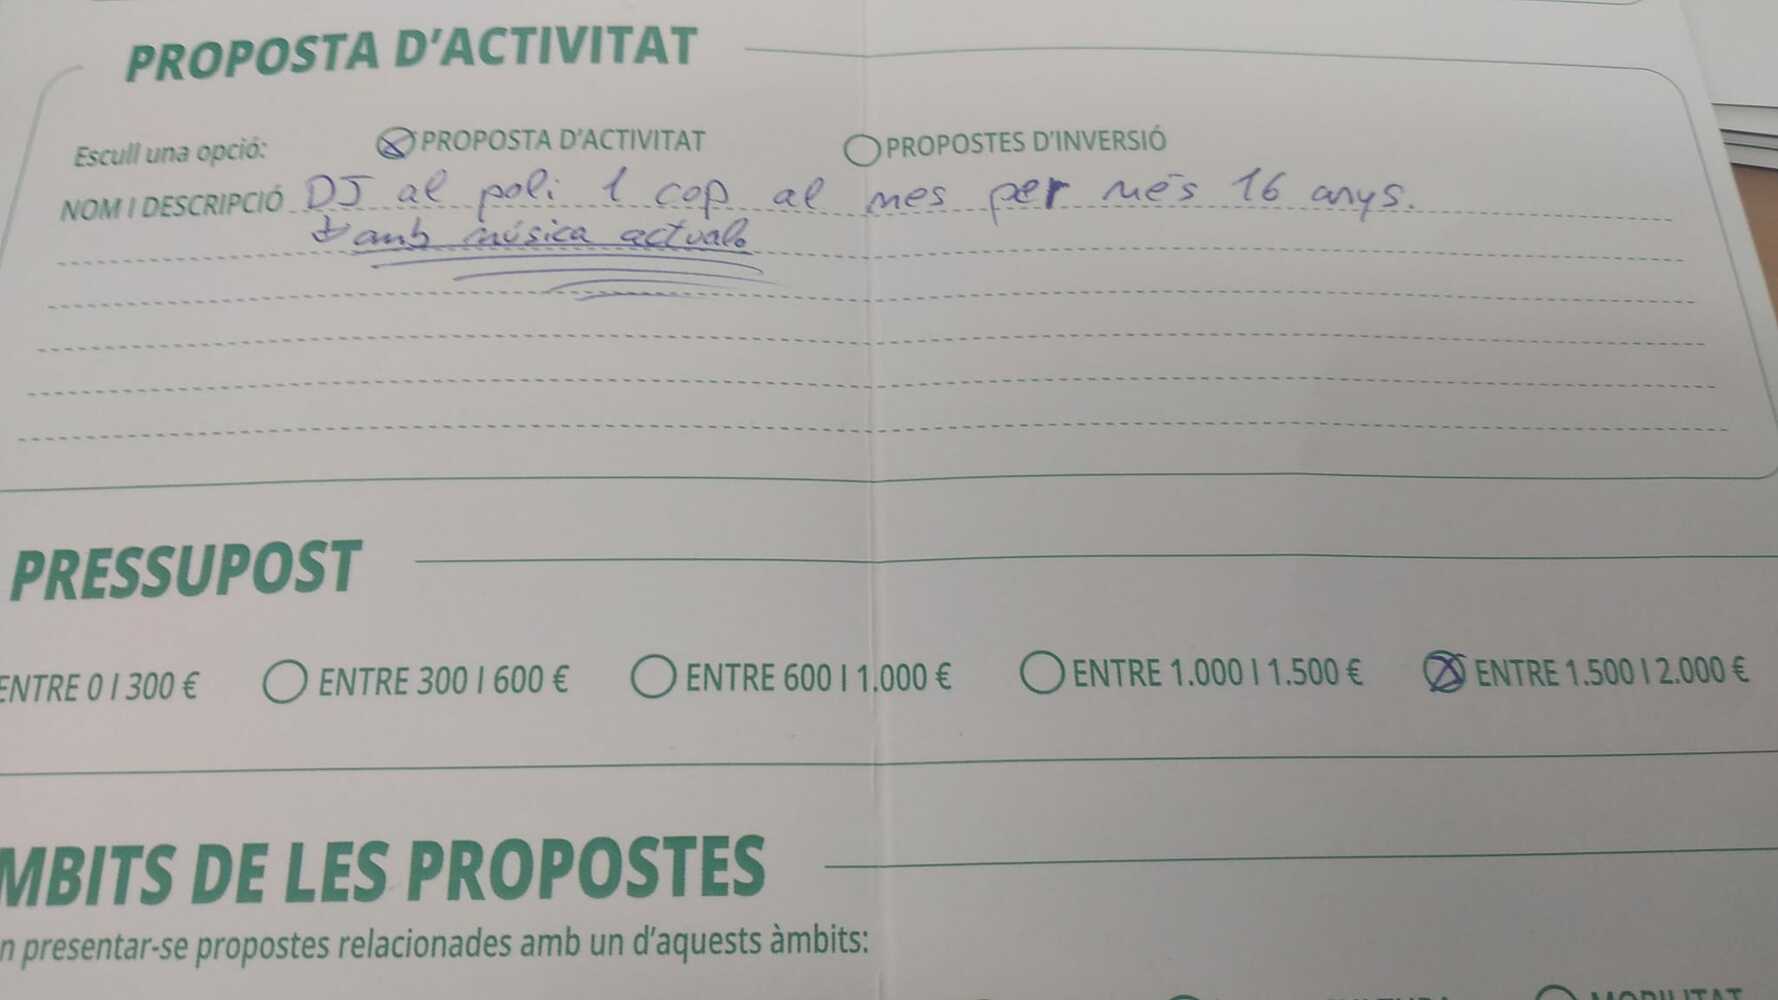 PROPOSTA D'ACTIVITAT
Escull una opció: PROPOSTA D'ACTIVITAT PROPOSTES D'INVERSIÓ
NOM I DESCRIPCIÓ DJ al poli 1 cop al mes per més 16 anys.
amb música actual.
PRESSUPOST
ENTRE 0 I 300 € ENTRE 300 I 600 € ENTRE 600 I 1.000 € ENTRE 1.000 I 1.500 € ENTRE 1.500 I 2.000 €
MBITS DE LES PROPOSTES
n presentar-se propostes relacionades amb un d'aquests àmbits:
MOBILITAT